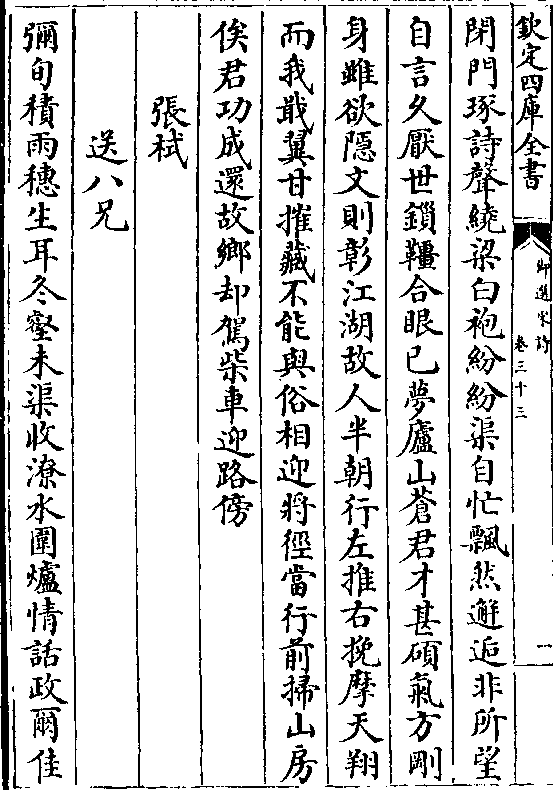 欽定四庫全書
御選宋詩
卷三十三
一
閉門琢詩聲繞梁白袍紛紛渠自忙飄然邂逅非所望
自言久厭世鎖韁合眼已夢廬山蒼君才甚碩氣方剛
身雖欲隱文則彰江湖故人半朝行左推右挽摩天翔
而我戢翼甘摧藏不能與俗相迎將徑當行前掃山房
俟君功成還故鄉却駕柴車迎路傍
張栻
送八兄
彌旬積雨穗生耳冬壑未渠收潦水圍爐情話政爾佳